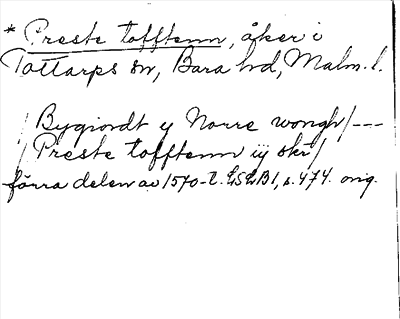 * Preste tofftenn, åker i
Tottarps sn, Bara hd, Malm. l.
/ Bygiordt y Norre wongh / ---
/ Preste tofftenn iij skr /
förra delen av 1570-t. LSLB 1, s. 474. orig.